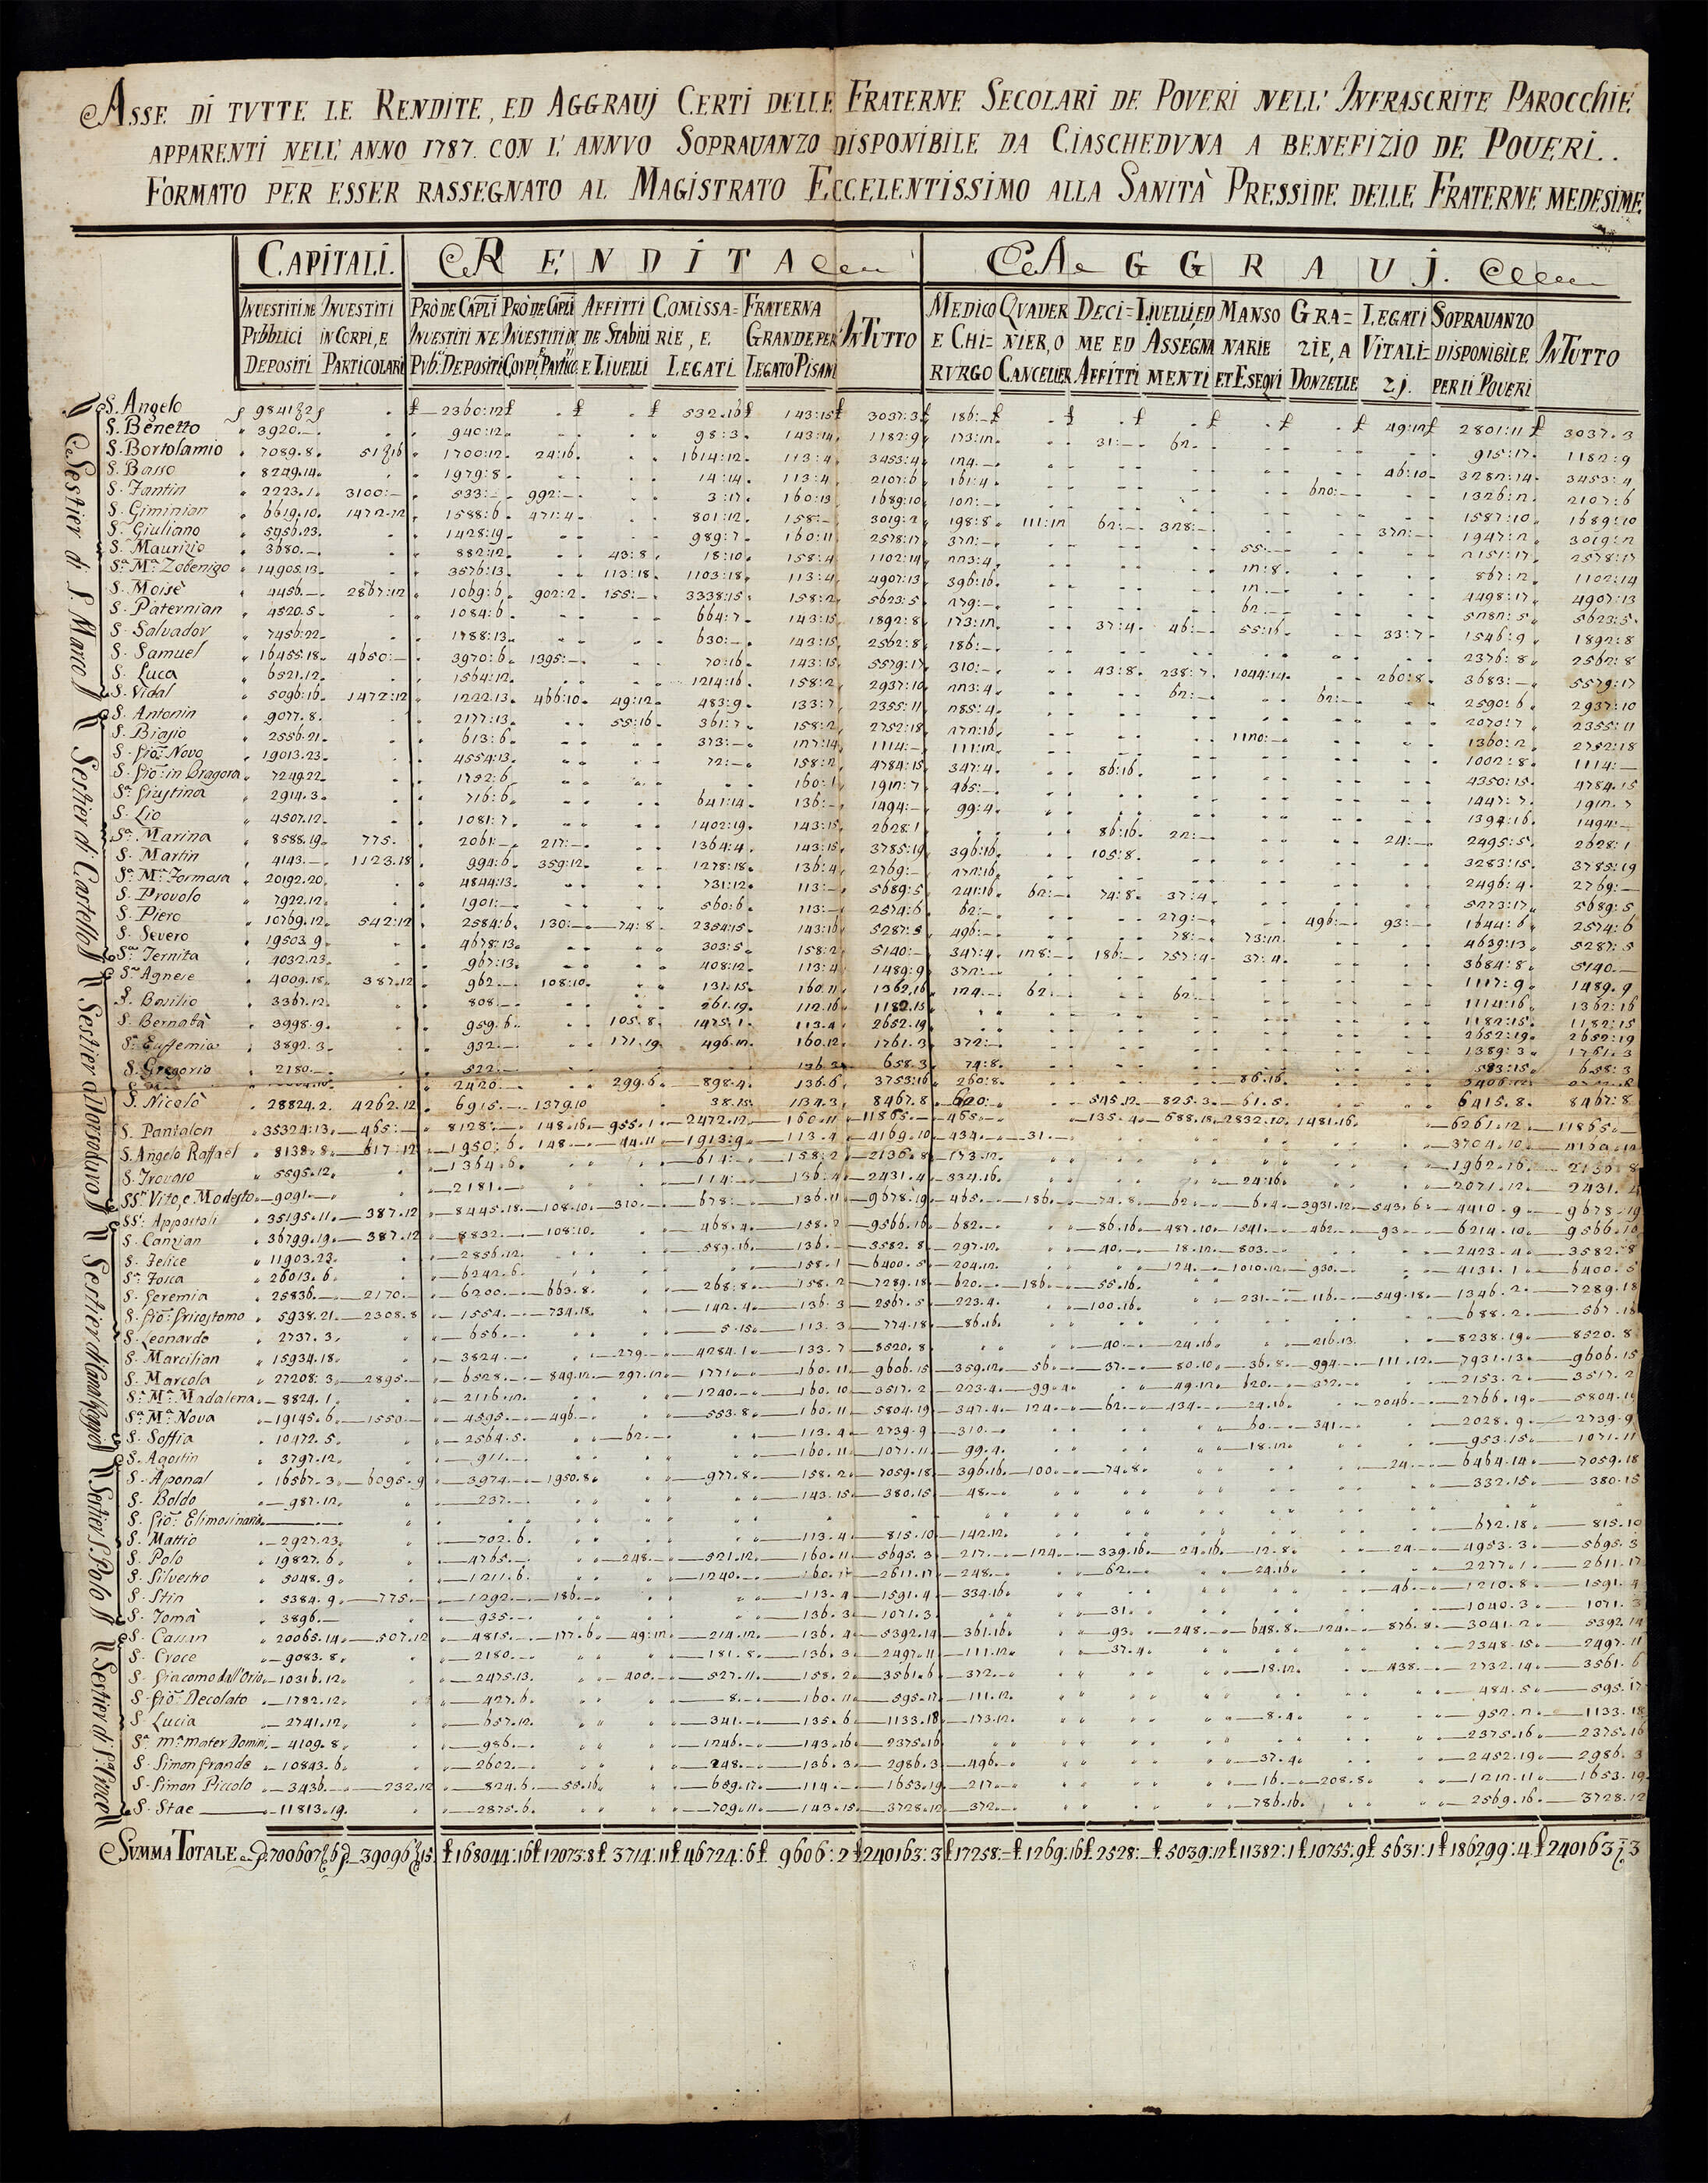 ASSE DI TVTTE LE RENDITE, ED AGGRAUJ CERTI DELLE FRATERNE SECOLARI DE POVERI NELL' INFRASCRITE PAROCCHIE
APPARENTI NELL' ANNO 1787. CON L' ANNVO SOPRAUANZO DISPONIBILE DA CIASCHEDVNA A BENEFIZIO DE POUERI..
FORMATO PER ESSER RASSEGNATO AL MAGISTRATO ECCELENTISSIMO ALLA SANITÀ PRESSIDE DELLE FRATERNE MEDESIME
CAPITALI. RENDITA AGGRAUJ.
INUESTITI NE PVBBLICI DEPOSITI
INUESTITI IN CORPI, E PARTICOLARI
PRÒ DE CAPLI INUESTITI NE PVB: DEPOSITI
PRÒ DE CAPLI INUESTITI IN CORPI, E PARTICO:
AFFITTI DE STABILI E LIUELLI
COMISSA= RIE, E LEGATI
FRATERNA GRANDE PER LEGATO PISANI
IN TUTTO
MEDICO E CHI= RVRGO
QVADER NIER, O CANCELIER
DECI= ME ED AFFITTI
LIUELLI, ED ASSEGNA MENTI
MANSO NARIE ET ESEQVI
GRA= ZIE, A DONZELLE
LEGATI VITALI= ZJ.
SOPRAUANZO DISPONIBILE PER LI POUERI
IN TUTTO
Sestier di S. Marco
S. Angelo 9841:2 £ 2360:12 £ £ £ 532.16 £ 143:15 £ 3037:3 £ 186:— £ £ £ £ £ £ 49:12 £ 2801:11 £ 3037.3
S. Benetto 3920.— 940:12 98:3 143:14 1182:9 173:12 31:— 62.— 915:17 1182:9
S. Bortolamio 7089.8 51:16 1700:12 24:16 1614:12 113:4 3453:4 124.— 46:10 3282:14 3453:4
S. Basso 8249.14 1979:8 14:14 113:4 2107:6 161:4 620:— 1326:2 2107:6
S. Fantin 2223.1 3100:— 533:— 992:— 3:17 160:13 1689:10 102:— 1587:10 1689:10
S. Giminian 6619.10 1472.12 1588:6 471:4 801:12 158:— 3019:2 198:8 111:12 62:— 328:— 372:— 1947:2 3019:2
S. Giuliano 5950.23 1428:19 989:7 160:11 2578:17 372:— 55:— 2151:17 2578:17
S. Maurizio 3680.— 882:12 43:8 18:10 158:4 1102:14 223:4 12:8 867:2 1102:14
Sa. Ma. Zobenigo 14905.13 3576:13 113:18 1103:18 113:4 4907:13 396:16 12.— 4498:17 4907:13
S. Moisè 4456.— 2867:12 1069:6 902:2 155:— 3338:15 158:2 5623:5 279:— 62:— 5282:5 5623:5
S. Paternian 4520.5 1084:6 664:7 143:15 1892:8 173:12 37:4 46:— 55:16 33:7 1546:9 1892:8
S. Salvador 7456:22 1788:13 630:— 143:15 2562:8 186:— 2376:8 2562:8
S. Samuel 16455.18 4650:— 3970:6 1395:— 70:16 143:15 5579:17 310:— 43:8 238:7 1044:14 260:8 3683:— 5579:17
S. Luca 6521.12 1564:12 1214:16 158:2 2937:10 223:4 62:— 62:— 2590:6 2937:10
S. Vidal 5096:16 1472:12 1222.13 466:10 49:12 483:9 133:7 2355:11 285:4 2070:7 2355:11
Sestier di Castello
S. Antonin 9077.8 2177:13 55:16 361:7 158:2 2752:18 272:16 1120:— 1360:2 2752:18
S. Biasio 2556.21 613:6 373:— 127:14 1114:— 111:12 1002:8 1114:—
S. Gio: Novo 19013.23 4554:13 72:— 158:2 4784:15 347:4 86:16 4350:15 4784.15
S. Gio: in Bragora 7249.22 1752:6 160:1 1912:7 465:— 1447:7 1912.7
Sa. Giustina 2914.3 716:6 641:14 136:— 1494:— 99:4 1394:16 1494:—
S. Lio 4507.12 1081:7 1402:19 143:15 2628:1 86:16 22:— 24:— 2495:5 2628:1
Sa. Marina 8588.19 775. 2061:— 217:— 1364:4 143:15 3785:19 396:16 105:8 3283:15 3785:19
S. Martin 4143.— 1123.18 994:6 359:12 1278:18 136:4 2769:— 272:16 2496:4 2769:—
Sa. Ma. Formosa 20192.20 4844:13 731:12 113:— 5689:5 241:16 62:— 74:8 37:4 5273:17 5689:5
S. Provolo 7922.12 1901:— 560:6 113:— 2574:6 62:— 279:— 496:— 93:— 1644:6 2574:6
S. Piero 10769.12 542:12 2584:6 130:— 74:8 2354:15 143:16 5287:5 496:— 78:— 73:12 4639:13 5287:5
S. Severo 19503.9 4678:13 303:5 158:2 5140:— 347:4 128:— 186:— 757:4 37:4 3684:8 5140.—
Sa. Ternita 4032.23 967:13 408:12 113:4 1489:9 372:— 1117:9 1489.9
Sestier di Dorsoduro
Sa. Agnese 4009.18 387.12 962.— 108:10 131.15 160.11 1362.16 124.— 62.— 62.— 1114:16 1362:16
S. Basilio 3367.12 808.— 261.19 112.16 1182.15 1182:15 1182:15
S. Bernabà 3998.9 959.6 105.8 1475.1 113.4 2652.19 2652:19 2652:19
Sa. Euffemia 3892.3 932.— 171.19 496.12 160.12 1761.3 372:— 1389:3 1761.3
S. Gregorio 2180.— 522.— 136.3 658.3 74:8 583:15 658:3
2420.— 299.6 898.4 136.6 3753:16 260:8 86.16
S. Nicolò 28824.2 4262.12 6915.— 1379.10 38.15 134.3 8467.8 620:— 545.12 825.3 61.5 6415.8 8467:8
S. Pantalon 35324:13 465:— 8128:— 148.16 955.1 2472.12 160.11 11865.— 465.— 135.4 688.18 2832.10 1481.16 6261.12 11865.—
S. Angelo Raffael 8138.8 617:12 1950:6 148.— 44.11 1913:9 113.4 4169.10 434.— 31.— 3704.10
S. Trovaso 5595.12 1364.6 614.— 158:2 2136.8 173.12 1962.16 2136.8
SSti. Vito, e Modesto 9091.— 2181.— 114.— 136.4 2431.4 334.16 24:16 2071.12 2431.4
Sestier di Canal Reggio
SSti: Appostoli 35195.11 387.12 8445.18 108.10 310.— 678.— 136.11 9678.19 465.— 186.— 74.8 62.— 6.4 3931.12 543.6 4410.9 9678.19
S. Canzian 36799.19 387.12 8832.— 108:10 468.4 158.2 9566.16 682.— 86.16 487.10 1541.— 462.— 93.— 6214.10 9566.16
S. Felice 11903.23 2856.12 589.16 136.— 3582.8 297.12 40.— 18.12 803.— 2423.4 3582.8
Sa. Fosca 26013.6 6242.6 158.1 6400.5 204.12 124.— 1010.12 930.— 4131.1 6400.5
S. Geremia 25836.— 2170.— 6200.— 663.8 268:8 158.2 7289.18 620.— 186.— 55.16 231.— 116.— 549.18 1346.2 7289.18
S. Gio: Grisostomo 5938.21 2308.8 1554.— 734.18 142.4 136.3 2567.5 223.4 100.16
S. Leonardo 2737.3 656.— 5.15 113.3 774.18 86.16 688.2
S. Marcilian 15934.18 3824.— 279.— 4284.1 133.7 8520.8 40.— 24.16 216.13 8238.19 8520.8
S. Marcola 27208:3 2895.— 6528.— 849.12 297.12 1771.— 160.11 9606.15 359.12 56.— 37.— 80.10 36.8 994.— 111.12 7931.13 9606.15
Sa. Ma. Madalena 8824.1 2116.12 1240.— 160.10 3517.2 223.4 99.4 49.12 620.— 372.— 2153.2 3517.2
Sa. Ma. Nova 19145.6 1550.— 4595.— 496.— 553.8 160.11 5804.19 347.4 124.— 62.— 434.— 24.16 2046.— 2766.19 5804.19
S. Soffia 10472.5 2564.5 62.— 113.4 2739.9 310.— 60.— 341.— 2028.9 2739.9
Sestier S. Polo
S. Agostin 3797.12 911.— 160.11 1071.11 99.4 18.12 953.15 1071.11
S. Aponal 16567.3 6095.9 3974.— 1950.8 977.8 158.2 7059.18 396.16 100.— 74.8 24.— 6464.14 7059.18
S. Boldo 987.12 237.— 143.15 380.15 48.— 332.15 380.15
S. Gio: Elimosinario
S. Mattio 2927.23 702.6 113.4 815.10 142.12 672.18 815.10
S. Polo 19827.6 4765.— 248.— 521.12 160.11 5695.3 217.— 124.— 339.16 24.16 12.8 24.— 4953.3 5695.3
S. Silvestro 5048.9 1211.6 1240.— 160.11 2611.17 248.— 62.— 24.16 2277.1 2611.17
S. Stin 5384.9 775.— 1292.— 186.— 113.4 1591.4 334.16 46.— 1210.8 1591.4
S. Tomà 3896.— 935.— 136.3 1071.3 31.— 1040.3 1071.3
Sestier di Sa. Croce
S. Cassan 20065.14 507.12 4815.— 177.6 49:12 214.12 136.4 5392.14 361.16 93.— 248.— 648.8 124.— 876.8 3041.2 5392.14
S. Croce 9083.8 2180.— 181.8 136.3 2497.11 111.12 37.4 2348.15 2497.11
S. Giacomo dall'Orio 10316.12 2475.13 400.— 527.11 158.2 3561.6 372.— 18.12 438.— 2732.14 3561.6
S. Gio: Decolato 1782.12 427.6 8.— 160.11 595.17 111.12 484.5 595.17
S. Lucia 2741.12 657.12 341.— 135.6 1133.18 173.12 8.4 952.2 1133.18
Sa. Ma. Mater Domini 4109.8 986.— 1246.— 143.16 2375.16 2375.16 2375.16
S. Simon Grande 10843.6 2602.— 248.— 136.3 2986.3 496.— 37.4 2452.19 2986.3
S. Simon Piccolo 3436.— 232.12 824.6 55.16 659.17 114.— 1653.19 217.— 16.— 208.8 1212.11 1653.19
S. Stae 11813.19 2875.6 709.11 143.15 3728.12 372.— 786.16 2569.16 3728.12
SVMMA TOTALE 700607:6 39096:15 £168044:16 £12073:8 £3714:11 £46724:6 £9606:2 £240163:3 £17258:— £1269:16 £2528:— £5039:12 £11382:1 £10755:9 £5631:1 £186299:4 £240163:3